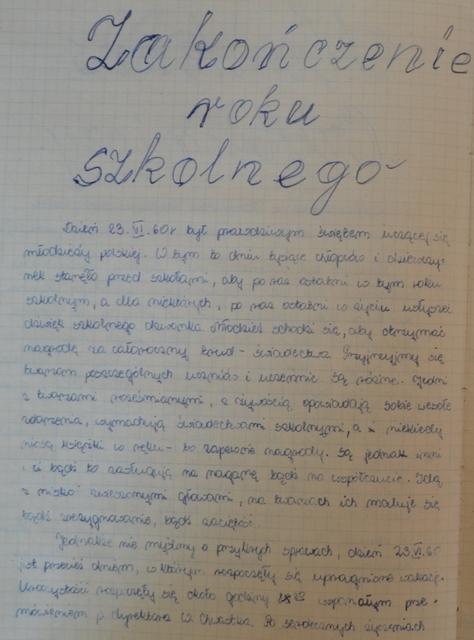 Zakończenie
roku
szkolnego
Dzień 23. VI. 60r był prawdziwym świętem uczącej się
młodzieży polskiej. W tym to dniu tysiące chłopców i dziewczy-
nek stanęło przed szkołami, aby po raz ostatni w tym roku
szkolnym, a dla niektórych, po raz ostatni w życiu usłyszeć
dźwięk szkolnego dzwonka. Młodzież schodzi się, aby otrzymać
nagrodę za całoroczny trud - świadectwa. Przyjrzyjmy się
twarzom poszczególnych uczniów i uczennic. Są różne. Jedni
z twarzami roześmianymi, z żywością opowiadają sobie wesołe
zdarzenia, wymachują świadectwami szkolnymi, a i niekiedy
niosą książki w ręku - to zapewne nagrody. Są jednak inni
, ci bądź to zasługują na naganę bądź na współczucie. Idą,
z nisko zwieszonymi głowami, na twarzach ich maluje się
bądź zrezygnowanie, bądź zaciętość.
Jednakże nie myślmy o przykrych sprawach, dzień 23.VI.60
jest przecież dniem, w którym rozpoczęły się upragnione wakacje.
Uroczystości rozpoczęły się około godziny wspaniałym prze-
mówieniem p. dyrektora W. Po serdecznych życzeniach